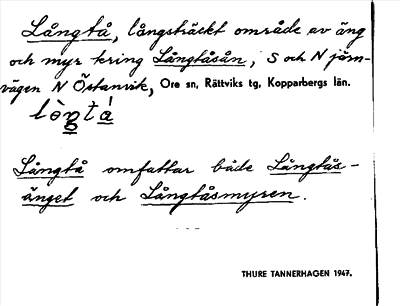 Långtå, långsträckt område av äng
och myr kring Långtåsån, S och N järn-
vägen N Östanvik, Ore sn, Rättviks tg, Kopparbergs län.
Långtå omfattar både Långtås-
änget och Långtåsmyren.
THURE TANNERHAGEN 1947.